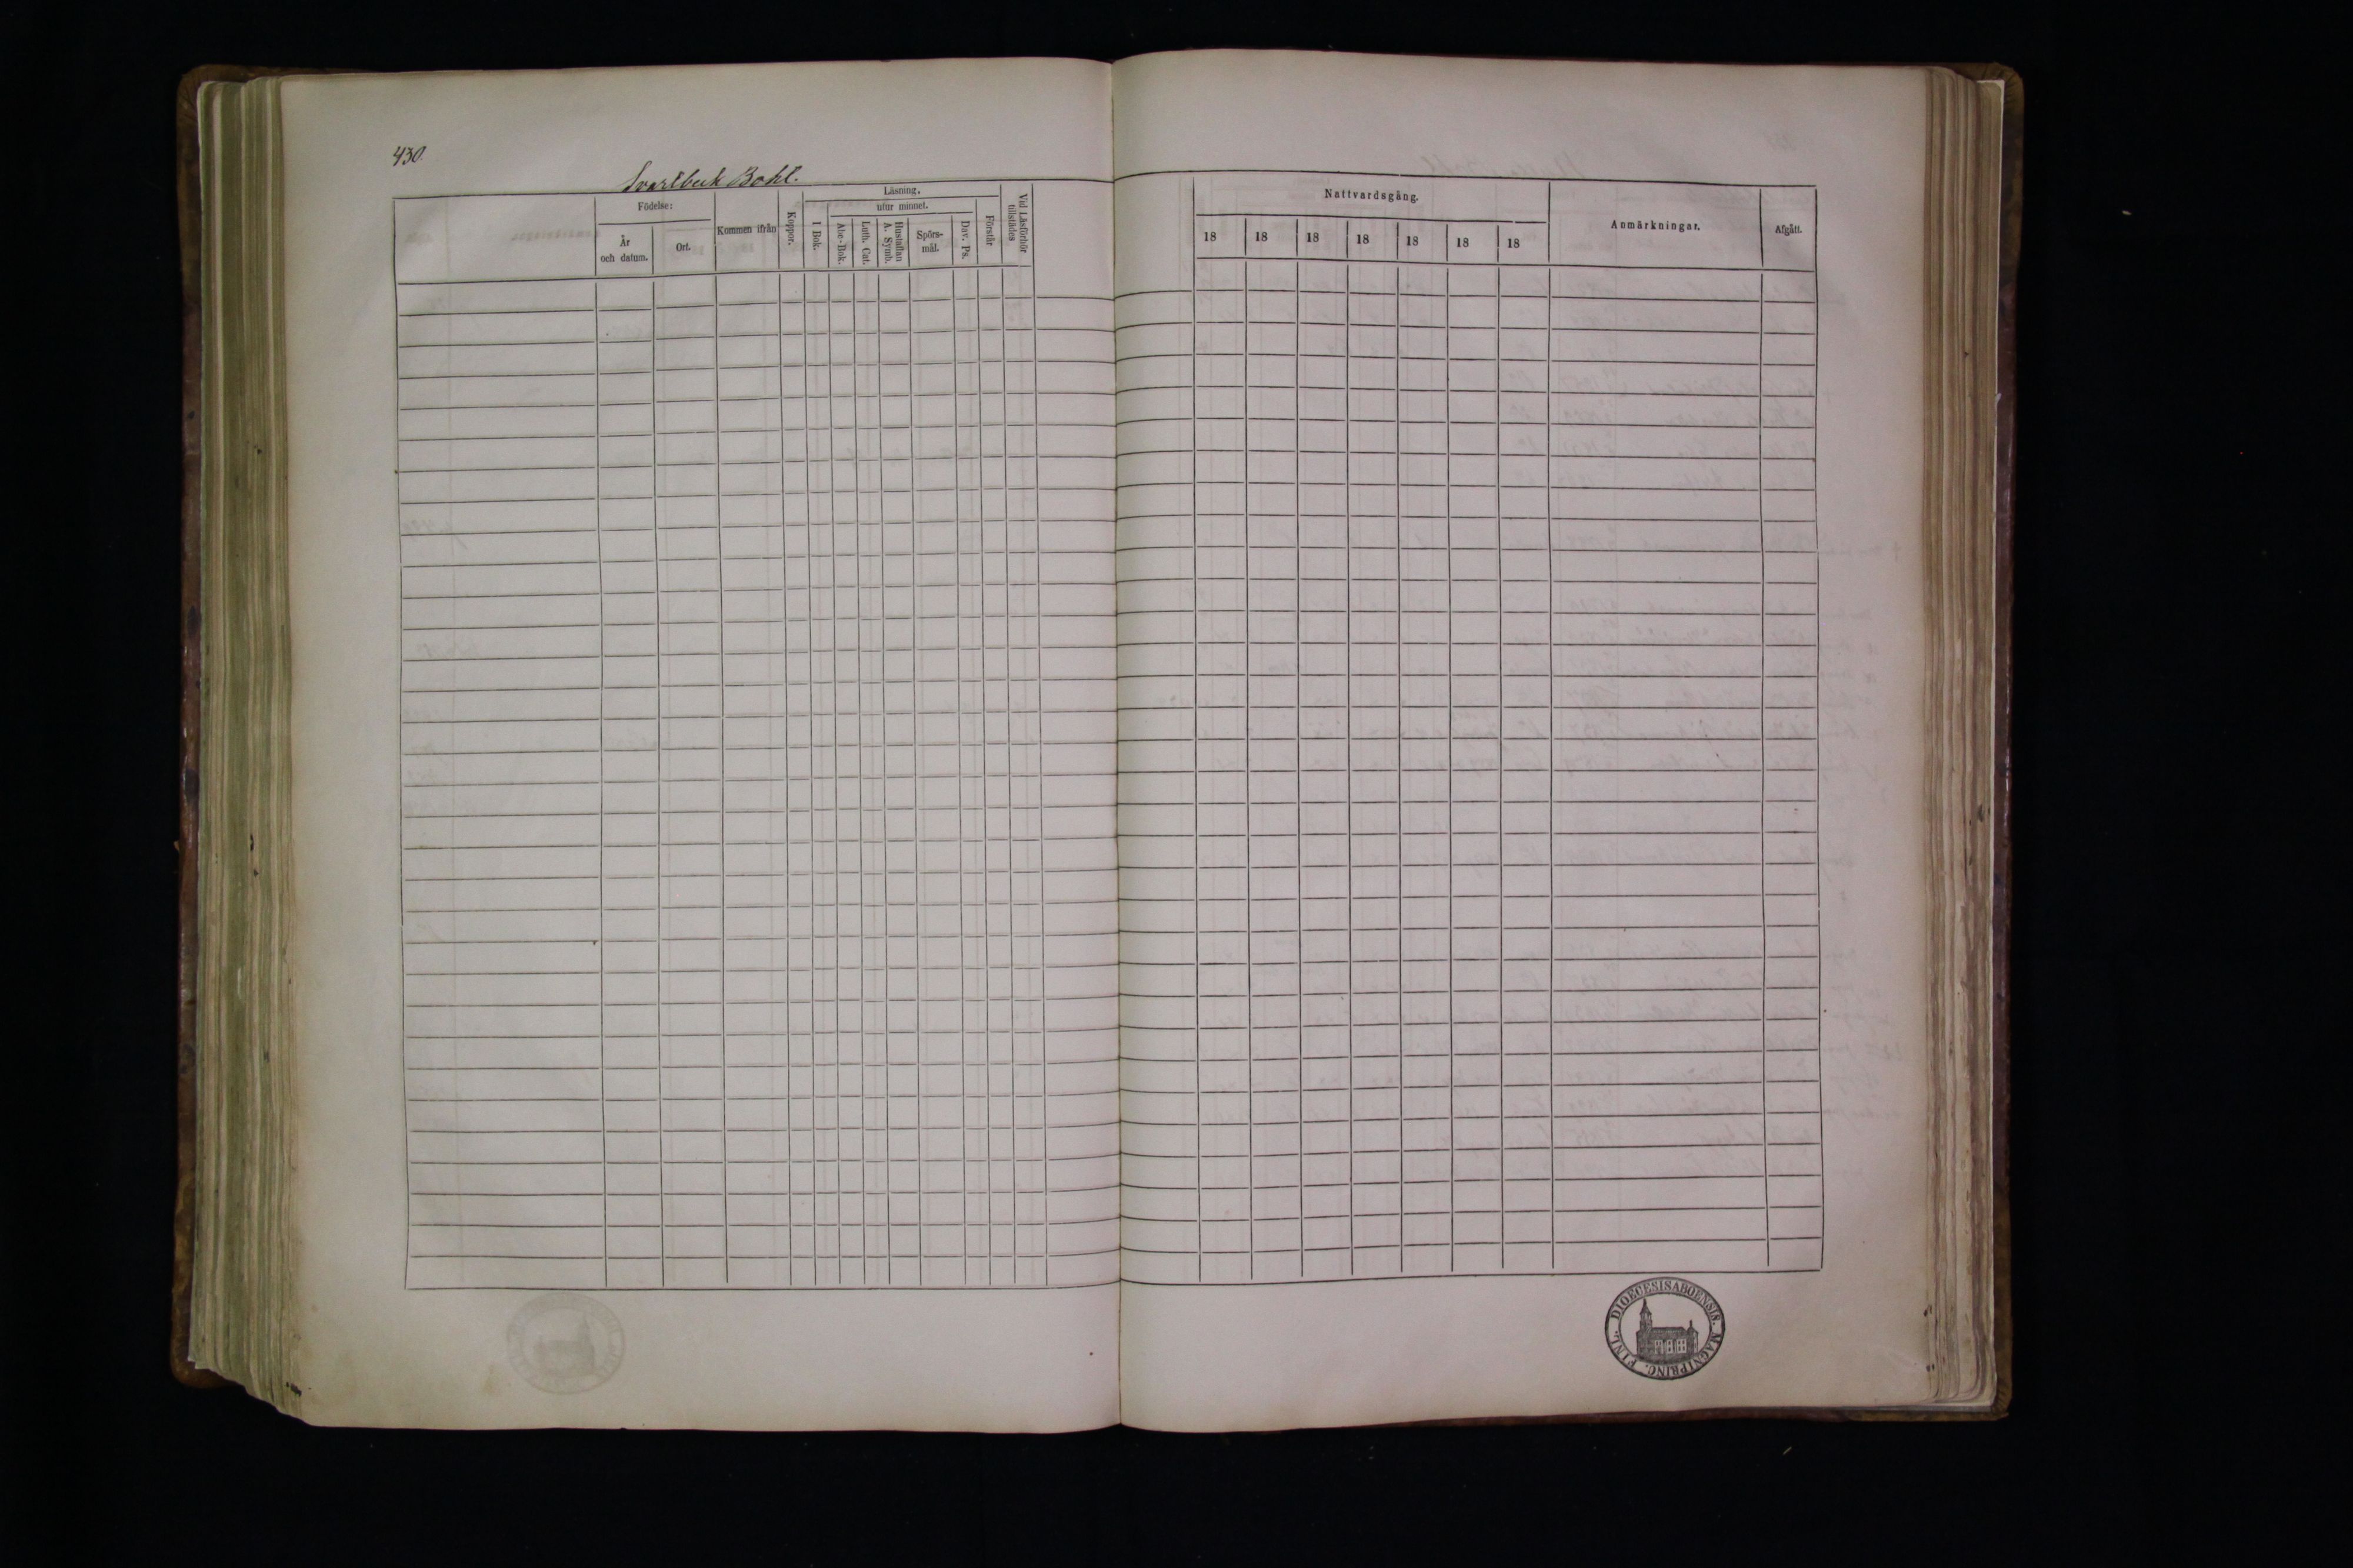 430.
Svartbeck Bohl.
Födelse:
År och datum.
Ort.
Kommen ifrån
Koppor.
Läsning.
I Bok.
utur minnet.
Abc-Bok.
Luth. Cat.
Hustaflan A. Symb.
Spörs-mål.
Dav. Ps.
Förstår
Vid Läsförhör tillstädes
Nattvardsgång.
18 18 18 18 18 18 18
Anmärkningar.
Afgått.
FINL. DIOECESIS ABOENSIS. MAGNI PRINC.